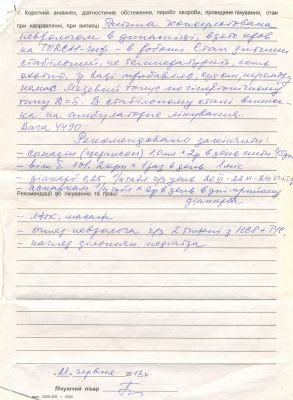 7. Короткий анамнез, діагностичне обстеження, перебіг хвороби, проведене лікування, стан
при направленні, при виписці Дитина консультована
неврологом в динаміці, взято кров
на TORCH-інф - в роботі. Стан дитини
стабільний, не температурить, їсть
охоче, у вазі прибавляє,
М'язевий тонус по гіпертонічному
типу D=S. В стабільному стані виписа-
на на амбулаторне лікування.
Вага 4490
Рекомендовано закінчити:
- 1,0 мл * 2р в день
- 10% * 1 раз в день 1 міс
- діакарб 0,25 1/4 табл
- аспаркам 1/4 табл * 2р в день в дні прийому
Рекомендації по лікуванню та праці:
діакарба
- ЛФК, масаж
- огляд невролога ч/з 2 тижні з НСГ+
- нагляд дільничн. педіатра
21 червня 2012 р.
Лікуючий лікар